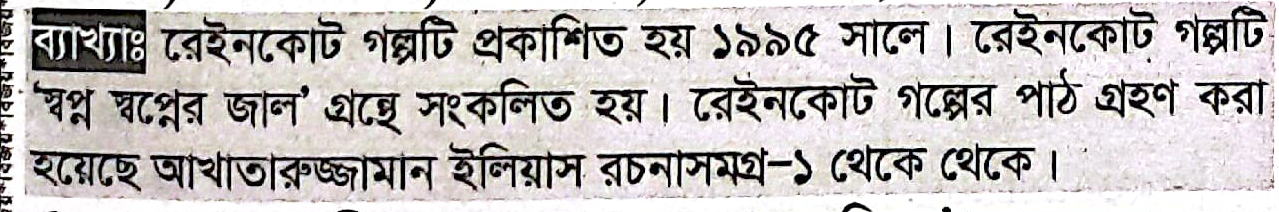 ব্যাখ্যাঃ রেইনকোট গল্পটি প্রকাশিত হয় ১৯৯৫ সালে। রেইনকোট গল্পটি
'স্বপ্ন স্বপ্নের জাল' গ্রন্থে সংকলিত হয়। রেইনকোট গল্পের পাঠ গ্রহণ করা
হয়েছে আখাতারুজ্জামান ইলিয়াস রচনাসমগ্র-১ থেকে থেকে।